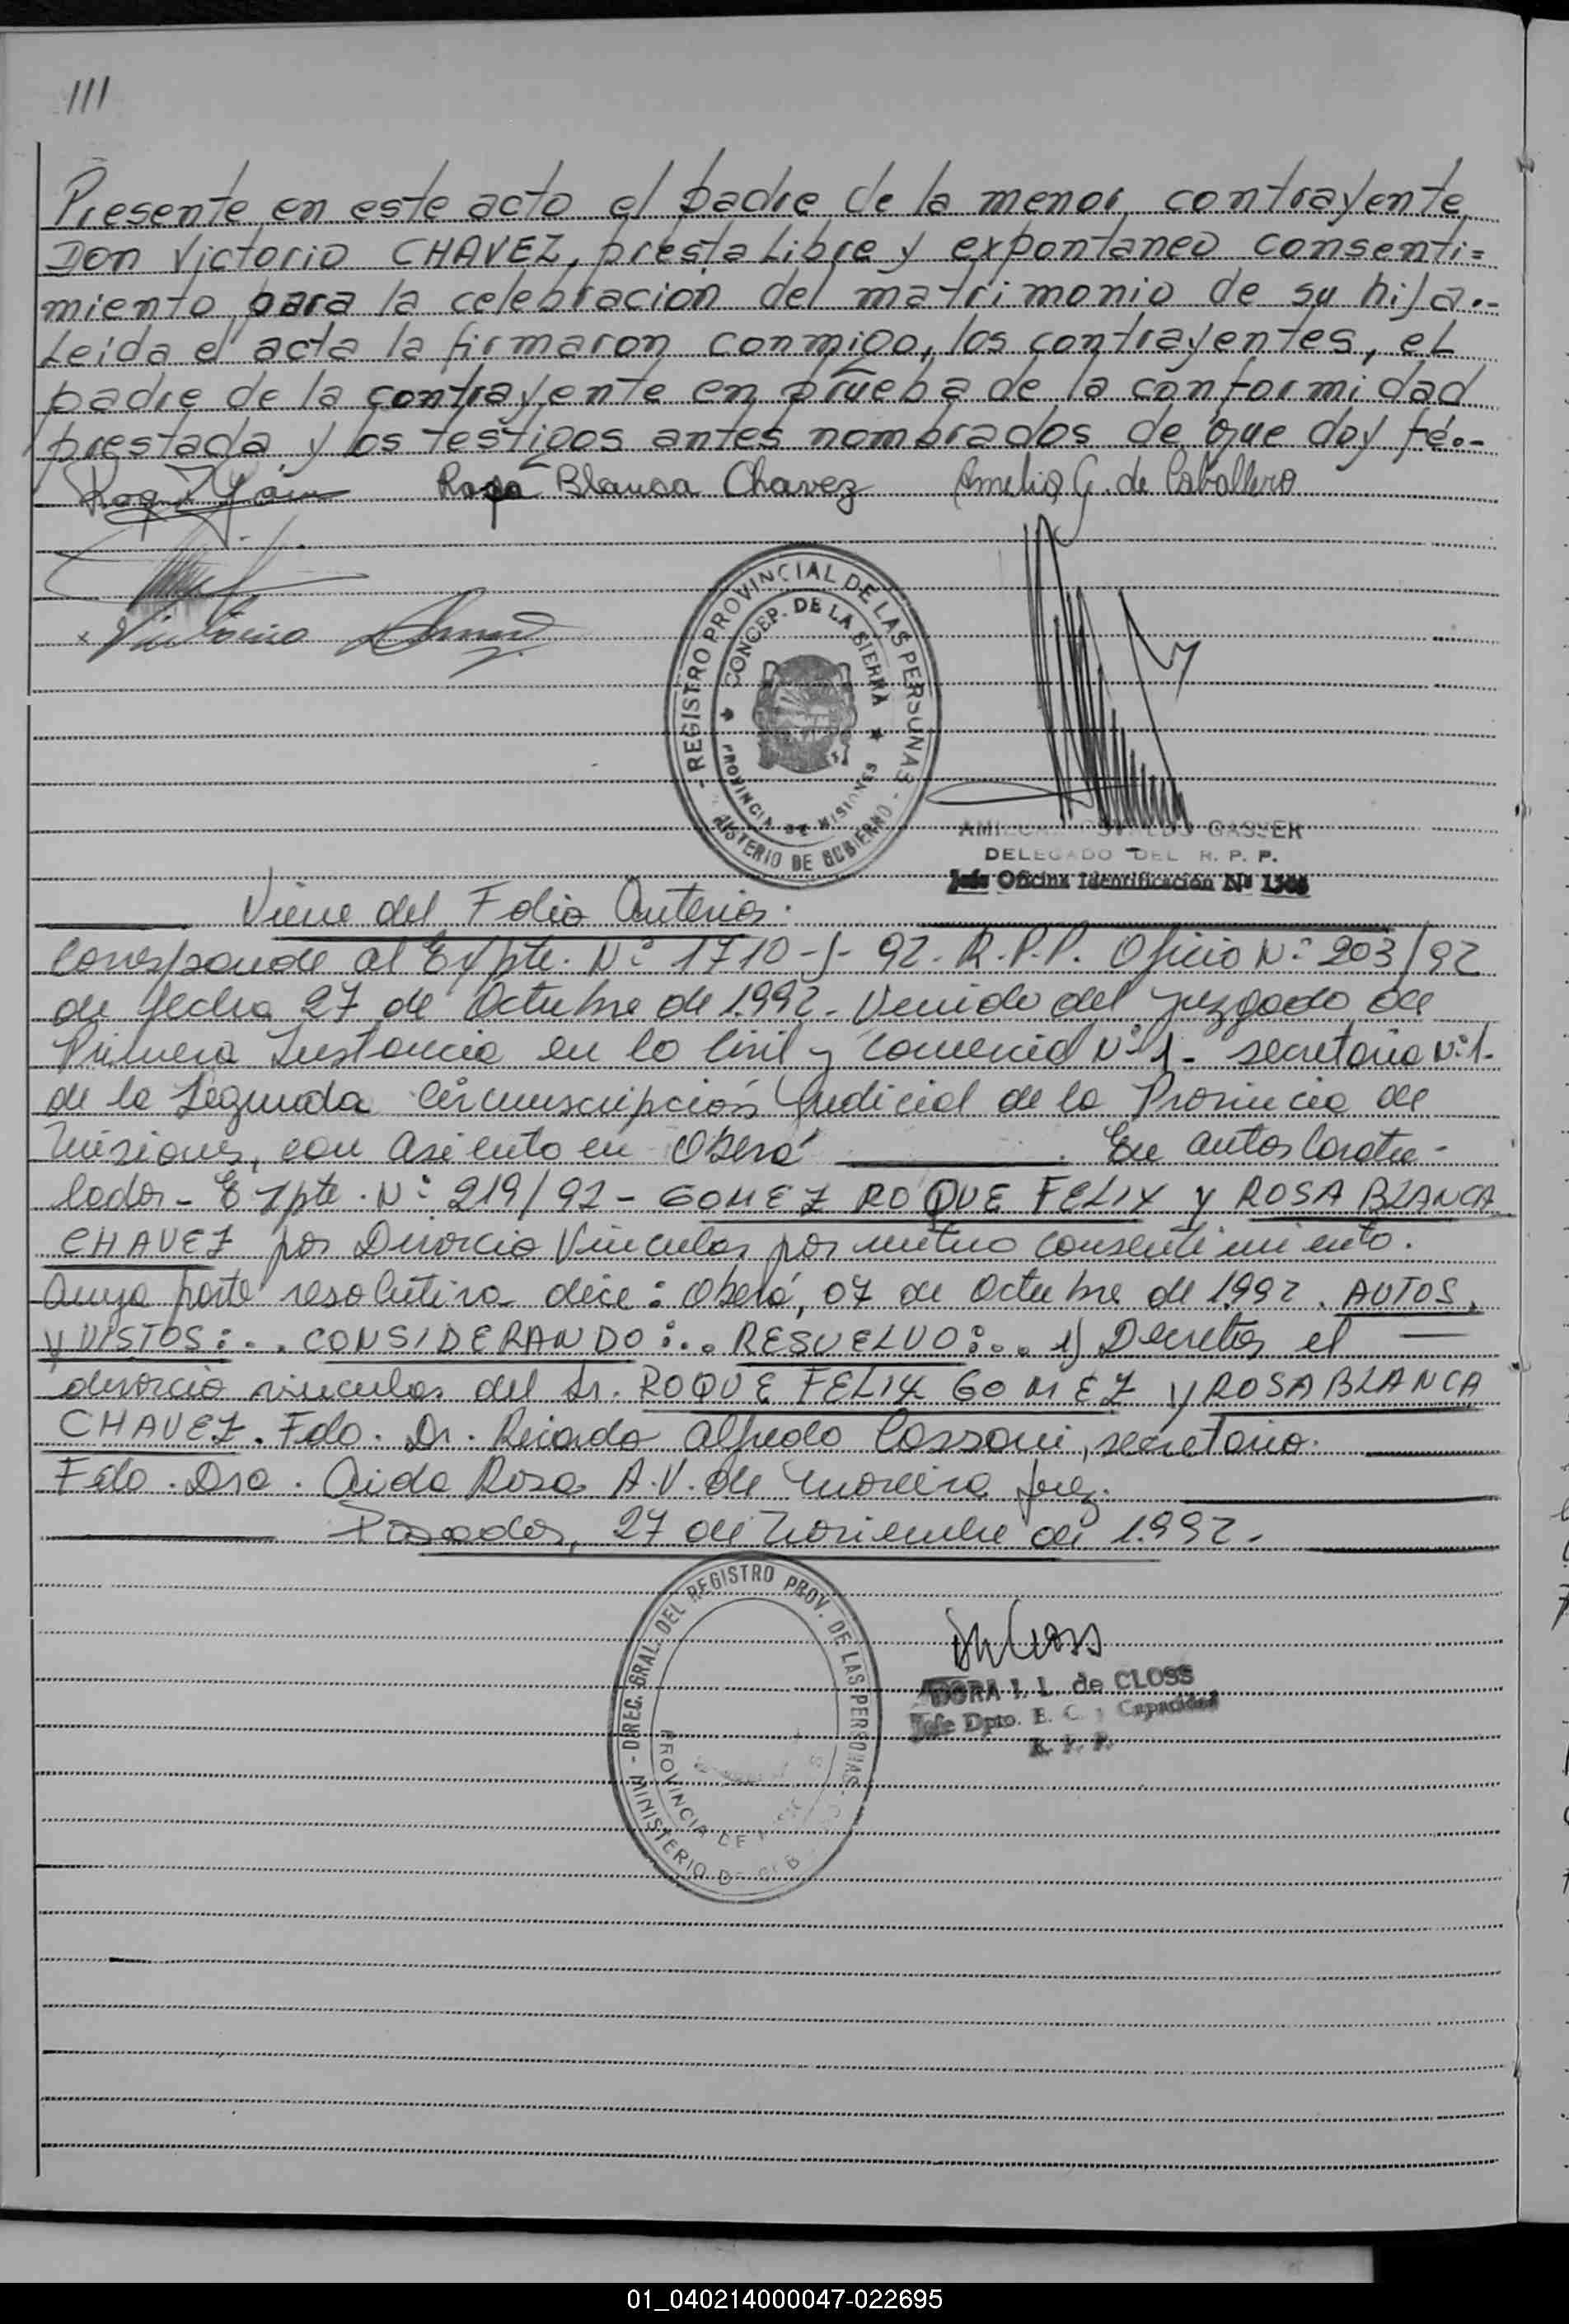 111
Presente en este acto el padre de la menor contrayente
Don Victorio CHAVEZ, presta Libre y expontaneo consenti=
miento para la celebracion del matrimonio de su hija.-
Leida el acta la firmaron conmigo, los contrayentes, el
padre de la contrayente en prueba de la conformidad
prestada y los testigos antes nombrados de que doy fé.-
Rosa Blanca Chavez Amelia G. de Caballero
- REGISTRO PROVINCIAL DE LAS PERSONAS -
CONCEP. DE LA SIERRA
PROVINCIA DE MISIONES
MISTERIO DE GOBIERNO
Victorio
GASSER
DELEGADO DEL R. P. P.
Jefe Oficina Identificación Nº
Viene del Folio Anterior.
Corresponde al Expte. Nº 1710-J-92. R.P.P. Oficio Nº 203/92
de fecha 27 de Octubre de 1.992. Venido del juzgado de
Primera Instancia en lo Civil y Comercial Nº 1- secretaria Nº 1-
de la Segunda Circunscripción Judicial de la Provincia de
Misiones, con asiento en Oberá . En autos Caratu-
lados- Expte. Nº 219/92- GOMEZ ROQUE FELIX y ROSA BLANCA
CHAVEZ por Divorcio Vincular por mutuo consentimiento.
Cuya parte resolutiva dice: Oberá, 07 de Octubre de 1992. AUTOS,
y VISTOS:... CONSIDERANDO:... RESUELVO:... 1) Decretar el
divorcio vincular del Sr. ROQUE FELIX GOMEZ y ROSA BLANCA
CHAVEZ. Fdo. Dr. Ricardo Alfredo Cassoni, secretario.
Fdo. Dra. Aida Rosa A.V. de Moreira Juez.
Posadas, 27 de Noviembre de 1.992.
- DIREC. GRAL. DEL REGISTRO PROV. DE LAS PERSONAS -
PROVINCIA DE
MINISTERIO DE
DORA I. L. de CLOSS
Jefe Dpto. E. C. y Capacidad
R. P. P.
01_040214000047-022695